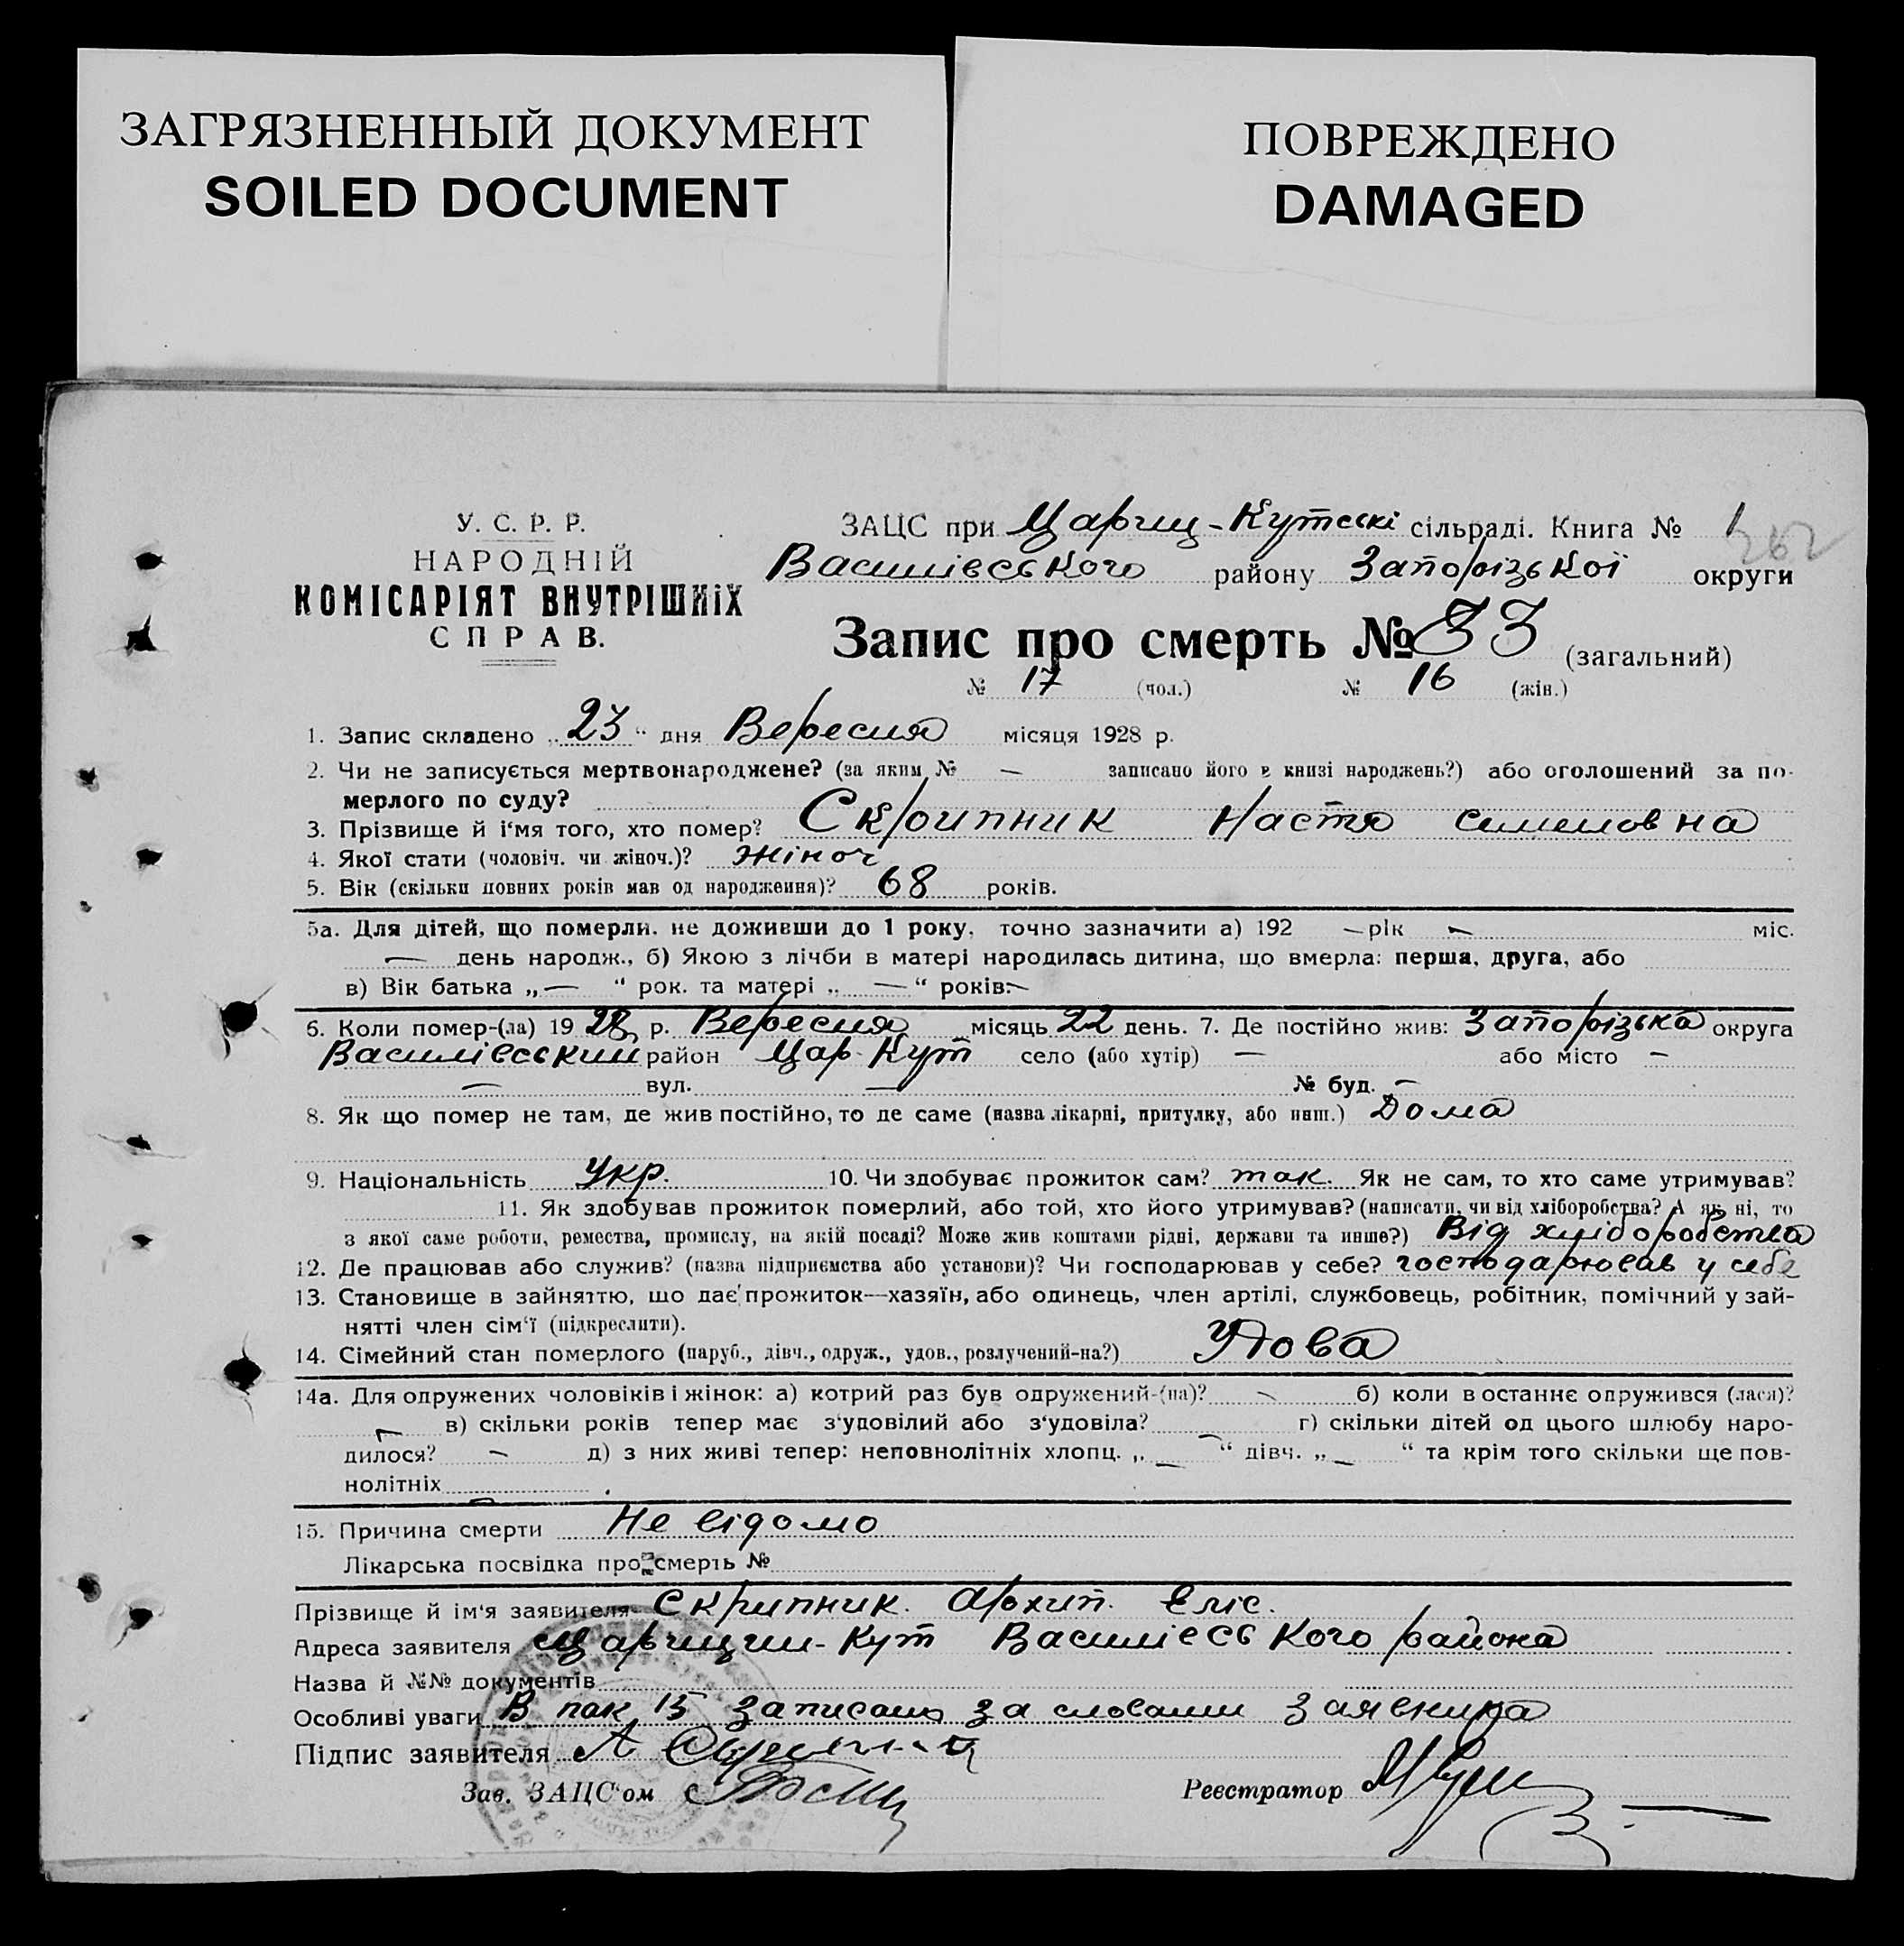 ЗАГРЯЗНЕННЫЙ ДОКУМЕНТ
SOILED DOCUMENT
ПОВРЕЖДЕНО
DAMAGED
У. С. Р. Р.
НАРОДНІЙ
КОМІСАРІЯТ ВНУТРІШНІХ
СПРАВ.
ЗАЦС при Цариц-Кутські сільраді. Книга № 1
262
Василівського району Запорізької округи
Запис про смерть № 33 (загальний)
№ 17 (чол.) № 16 (жін.)
1. Запис складено „23“ дня Вересня місяця 1928 р.
2. Чи не записується мертвонароджене? (за яким № — записано його в книзі народжень?) або оголошений за по-
мерлого по суду?
3. Прізвище й і‘мя того, хто помер? Скрипник Настя Семеновна
4. Якої стати (чоловіч. чи жіноч.)? жіноч
5. Вік (скільки повних років мав од народження)? 68 років.
5а. Для дітей, що померли, не доживши до 1 року, точно зазначити а) 192 — рік — міс.
— день народж., б) Якою з лічби в матері народилась дитина, що вмерла: перша, друга, або
в) Вік батька „—“ рок. та матері „—“ років: —
6. Коли помер-(ла) 1928 р. Вересня місяць 22 день. 7. Де постійно жив: Запорізька округа
Василівський район Цар-Кут село (або хутір) — або місто —
— вул. — № буд. —
8. Як що помер не там, де жив постійно, то де саме (назва лікарні, притулку, або инш.) Дома
9. Національність Укр. 10. Чи здобуває прожиток сам? так. Як не сам, то хто саме утримував?
11. Як здобував прожиток померлий, або той, хто його утримував? (написати, чи від хліборобства? А як ні, то
з якої саме роботи, ремества, промислу, на якій посаді? Може жив коштами рідні, держави та инше?) Від хліборобства
12. Де працював або служив? (назва підприємства або установи)? Чи господарював у себе? господарював у себе
13. Становище в зайняттю, що дає прожиток—хазяїн, або одинець, член артілі, службовець, робітник, помічний у зай-
нятті член сім‘ї (підкреслити).
14. Сімейний стан померлого (паруб., дівч., одруж., удов., розлучений-на?) Удова
14а. Для одружених чоловіків і жінок: а) котрий раз був одружений-(на)? — б) коли в останнє одружився (лася)?
— в) скільки років тепер має з‘удовілий або з‘удовіла? — г) скільки дітей од цього шлюбу наро-
дилося? — д) з них живі тепер: неповнолітніх хлопц. „—“ дівч. „—“ та крім того скільки ще пов-
нолітніх —
15. Причина смерти Не відомо
Лікарська посвідка про смерть №
Прізвище й ім‘я заявителя Скрипник. Архип. Еліс.
Адреса заявителя Царицин-Кут Василівського района
Назва й №№ документів
Особливі уваги В пак 15 записано за словами заявника
Підпис заявителя А
Зав. ЗАЦС‘ом
Реєстратор